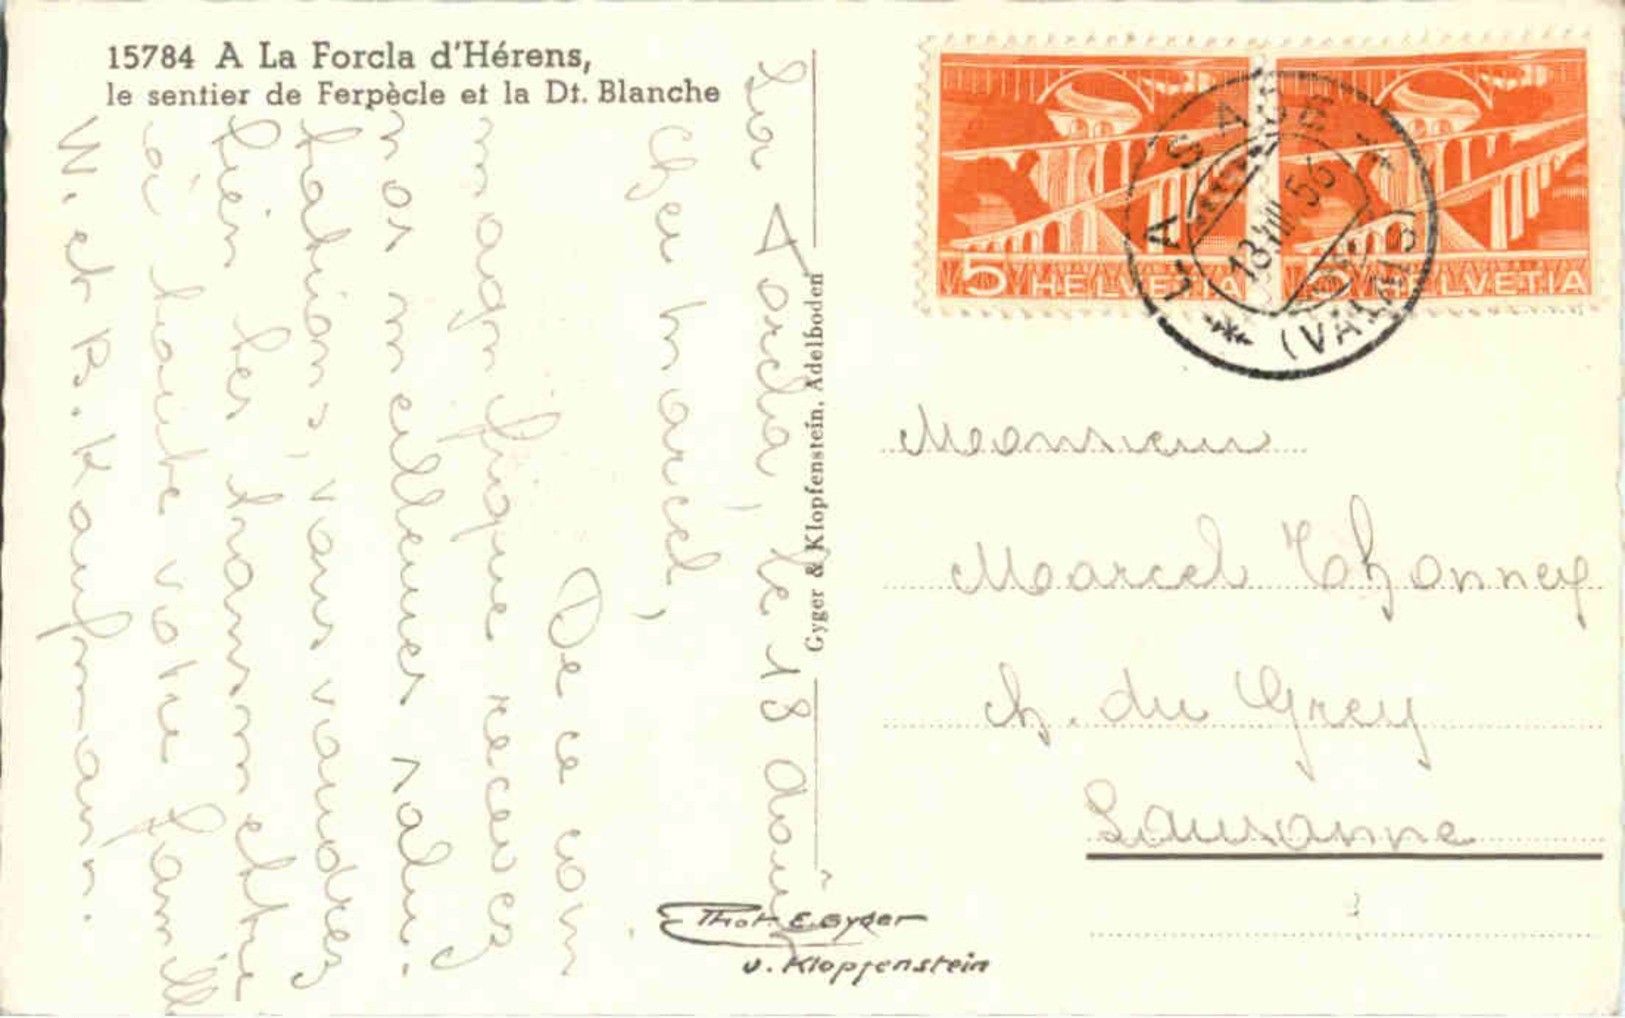 15784 A La Forcla d'Hérens,
le sentier de Ferpècle et la Dt. Blanche
La Forcla, le 18 août
Cher Marcel,
De ce coin
magnifique recevez
nos meilleures salu-
tations, vous voudrez
bien les transmettre
à toute votre famille
W. et B. Kaufmann.
Gyger & Klopfenstein, Adelboden
Phot. E. Gyger
u. Klopfenstein
5 HELVETIA
5 HELVETIA
LA SAGE
18 VIII 56
(VALAIS)
Monsieur
Marcel Thonney
ch. du Grey
Lausanne